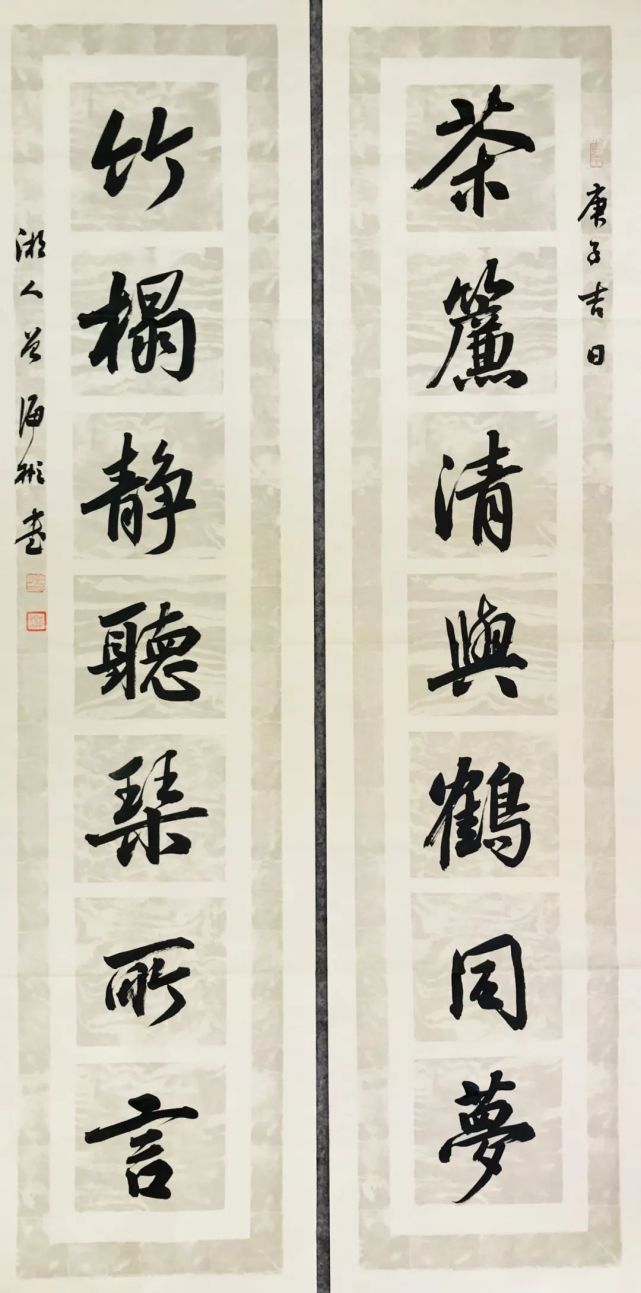 庚子吉日
茶簾清與鶴同夢
竹榻静聽琴所言
湘人曾海彬書